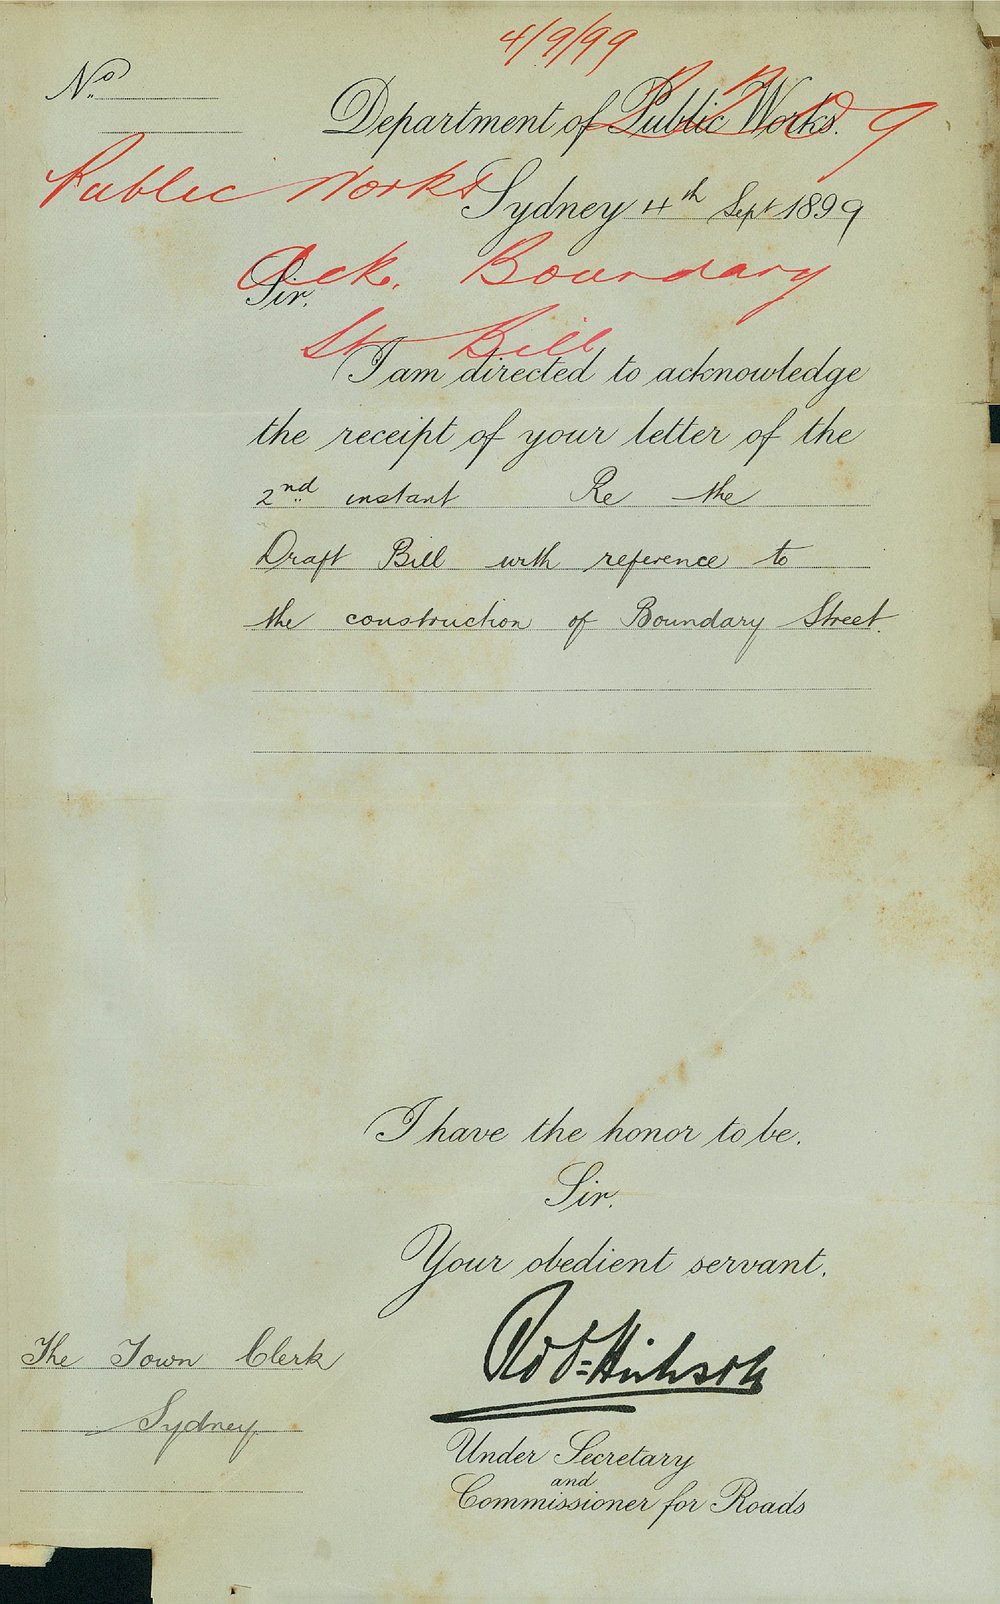 4/9/99
No.
Department of Public Works.
Public Works
Sydney 4th Sept 1899
Ack. Boundary
Sir,
St Bill
I am directed to acknowledge
the receipt of your letter of the
2nd instant Re the
Draft Bill with reference to
the construction of Boundary Street.
I have the honor to be,
Sir,
Your obedient servant,
Robt Hickson
The Town Clerk
Sydney
Under Secretary
and
Commissioner for Roads